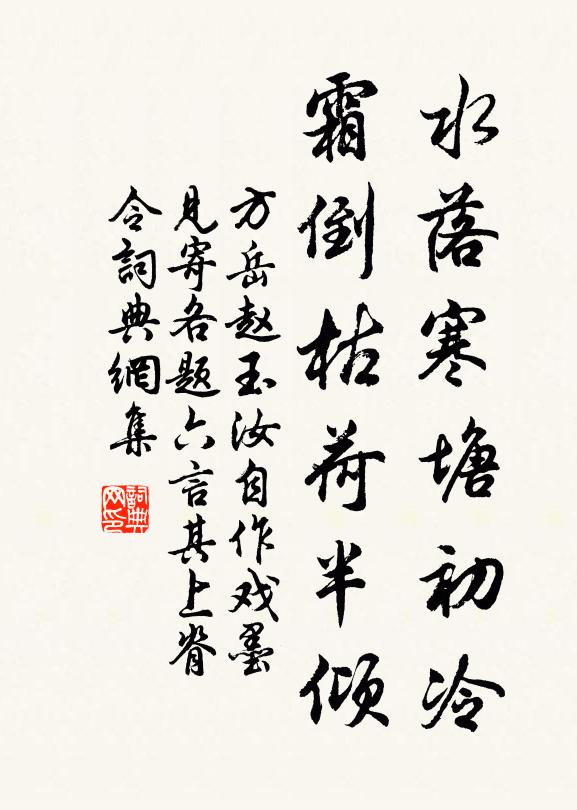 水落寒塘初冷
霜倒枯荷半傾
方岳赵玉汝自作戏墨
見寄各題六言其上脊
令詞典網集
詞典
网印